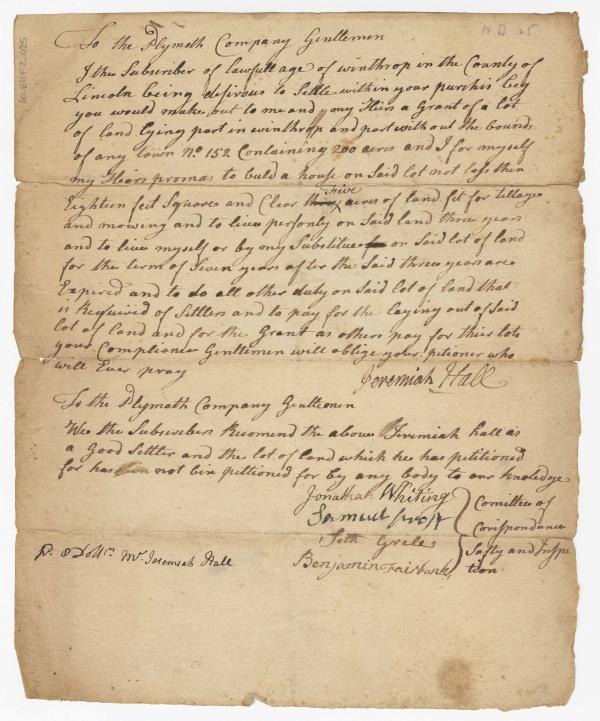 N D 25
To the Plymoth Company Gentlemen
I the Subscriber of lawfull age of winthrop in the County of
Lincoln being desirous to Settle within your purchis beg
you would make out to me and my Heirs a Grant of a lot
of land lying part in winthrop and part without the bounds
of any town No 152 Containing 200 acres and I for myself
my Heirs promas to buld a house on Said lot not less then
Eighteen feet Squares and Clear five acres of land fit for tillage
and mowing and to live personly on Said land three years
and to live myself or by my Substitue on Said lot of land
for the term of Seven years after the Said three years are
Expired and to do all other duty on Said lot of land that
is Required of Settlers and to pay for the laying out of Said
lot of land and for the Grant as others pay for their lots
your Complience Gentlemen will oblige your petioner who
will Ever pray
Jeremiah Hall
To the Plymoth Company Gentlemen
Wee the Subscribers Recomend the above Jeremiah hall as
a Good Settler and the lot of land which he has petitioned
for has not bin petitioned for by any body to our knoledge
Jonathan Whiting
Samuel
Seth Grele
Benjamin Fairbank
Comittee of
Corispondance
Safty and Inspe
ction
Mr. Jeremiah Hall